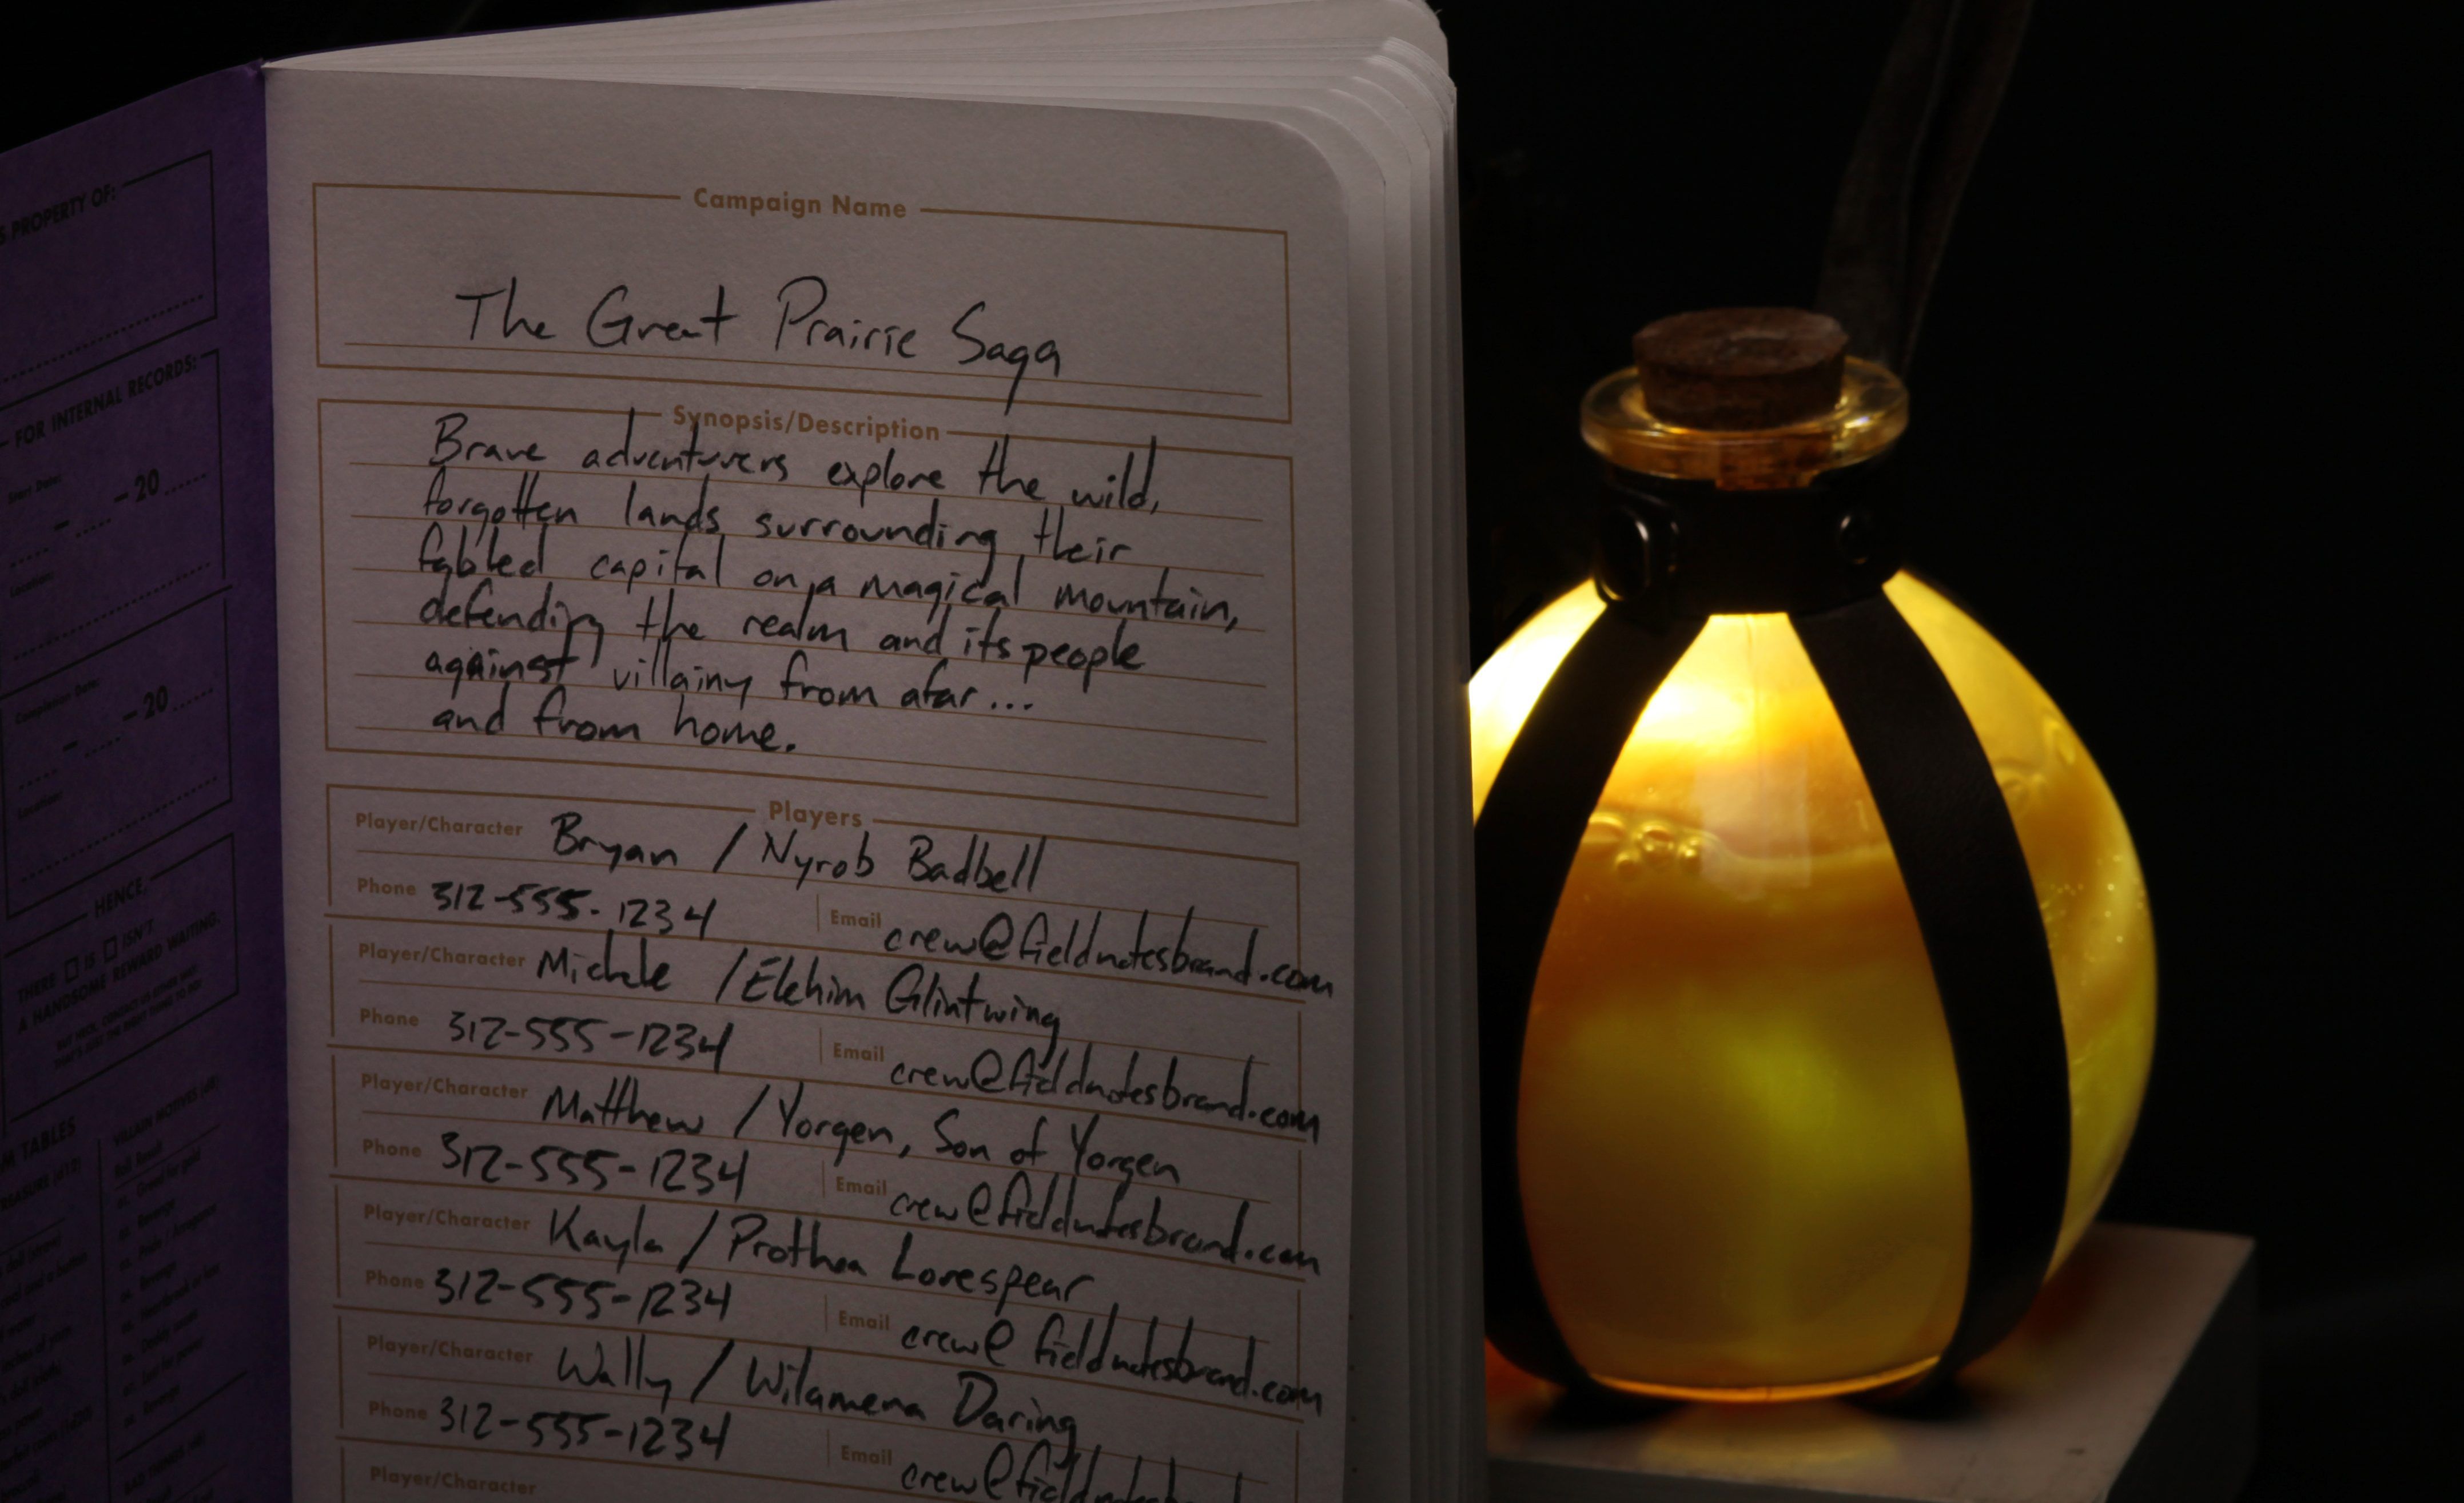 S PROPERTY OF:
FOR INTERNAL RECORDS:
Start Date:
- - 20
Location:
Completion Date:
- - 20
Location:
HENCE,
THERE IS ISN'T
A HANDSOME REWARD WAITING.
M TABLES
VILLAIN MOTIVES
Campaign Name
The Great Prairie Saga
Synopsis/Description
Brave adventurers explore the wild,
forgotten lands surrounding their
fabled capital on a magical mountain,
defending the realm and its people
against villainy from afar...
and from home.
Players
Player/Character Bryan / Nyrob Badbell
Phone 312-555-1234 Email crew@fieldnotesbrand.com
Player/Character Michele / Elehim Glintwing
Phone 312-555-1234 Email crew@fieldnotesbrand.com
Player/Character Matthew / Yorgen, Son of Yorgen
Phone 312-555-1234 Email crew@fieldnotesbrand.com
Player/Character Kayla / Prothea Lorespear
Phone 312-555-1234 Email crew@fieldnotesbrand.com
Player/Character Wally / Wilamena Daring
Phone 312-555-1234 Email crew@fieldnotesbrand
Player/Character